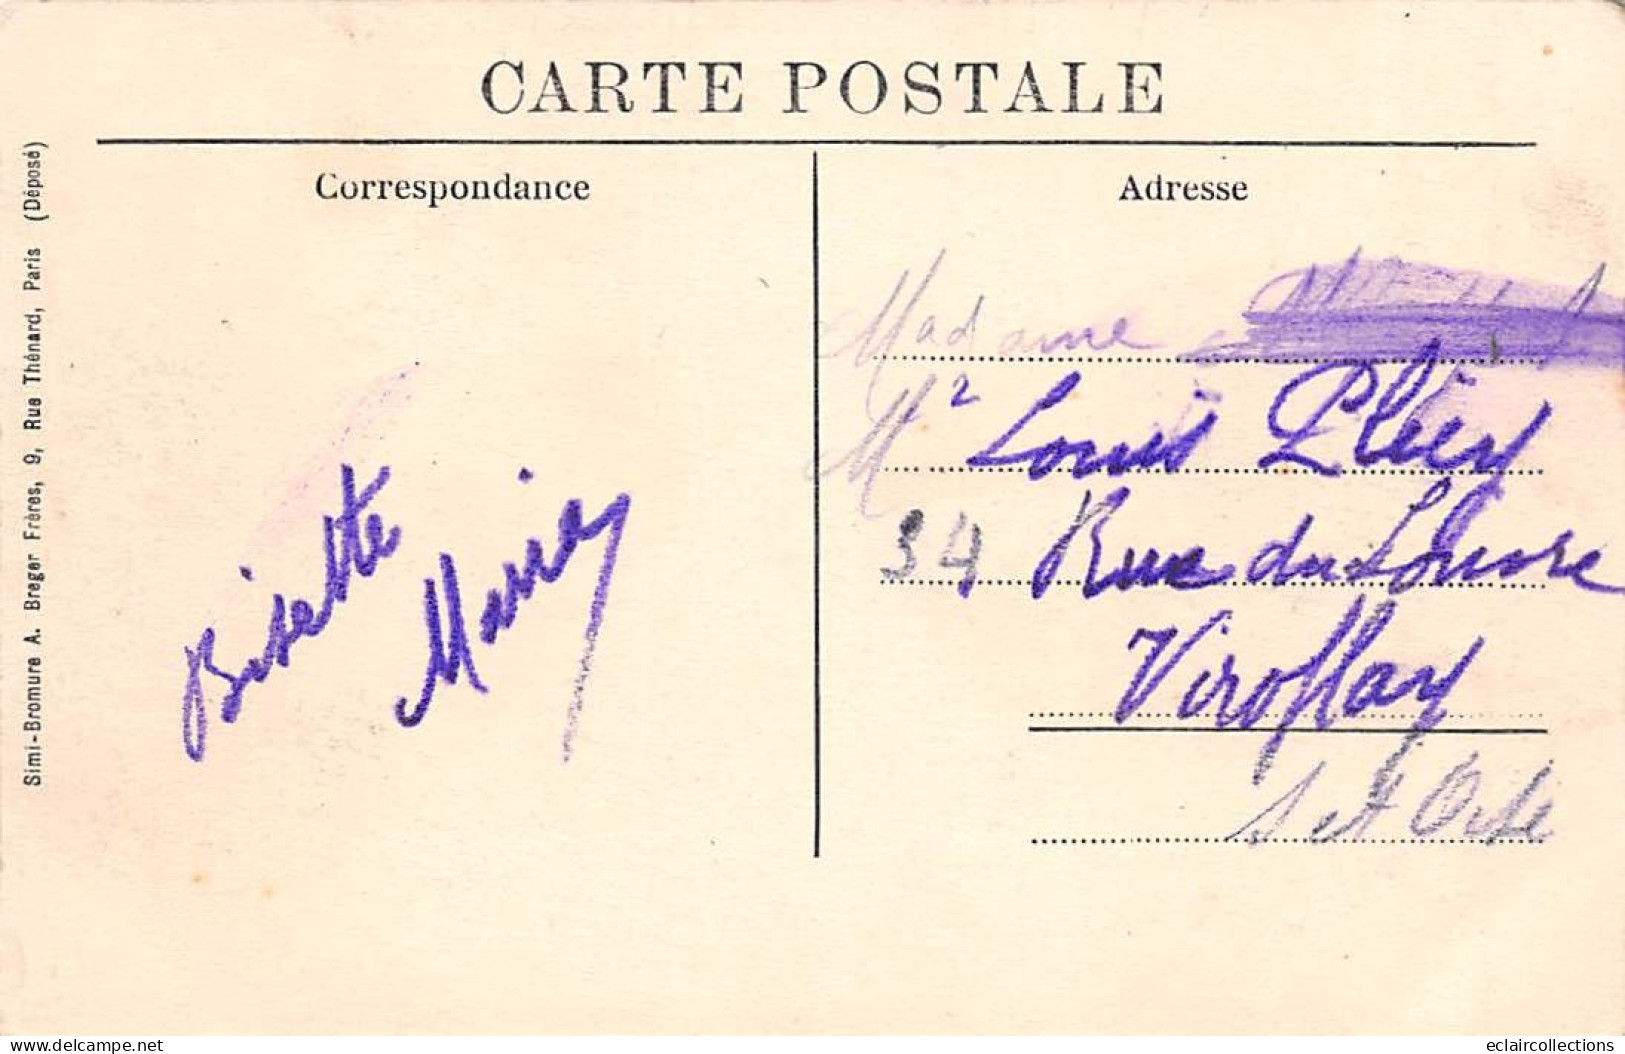 CARTE POSTALE
Correspondance
Adresse
Simi-Bromure A. Breger Frères, 9, Rue Thénard, Paris (Déposé)
Bisette
Maria
Madame
Mr Louis
34 Rue du Louvre
Viroflay
S et Oise
www.delcampe.net
eclaircollections